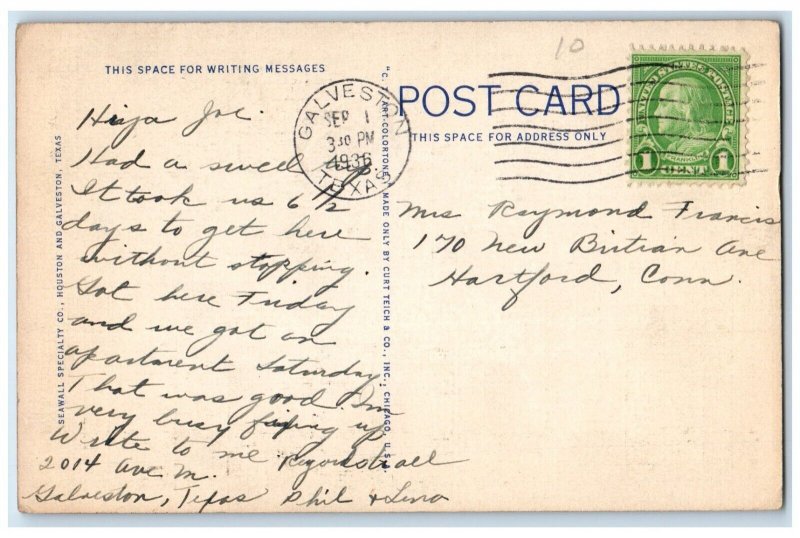 10
THIS SPACE FOR WRITING MESSAGES
POST CARD
THIS SPACE FOR ADDRESS ONLY
GALVESTON
SEP 1
3 30 PM
1936
TEXAS
UNITED STATES POSTAGE
FRANKLIN
1 CENT 1
Hiya Joe.
Had a swell
It took us 6 1/2
days to get here
without stopping.
Got here Friday
and we got an
apartment Saturday
That was good. Im
very busy fixing up
Write to me
2014 Ave M.
Galveston, Texas Phil + Lena
Mrs Raymond Francis
170 New Ave
Hartford, Conn.
SEAWALL SPECIALTY CO., HOUSTON AND GALVESTON, TEXAS
"C. T. ART-COLORTONE" MADE ONLY BY CURT TEICH & CO., INC., CHICAGO, U.S.A.